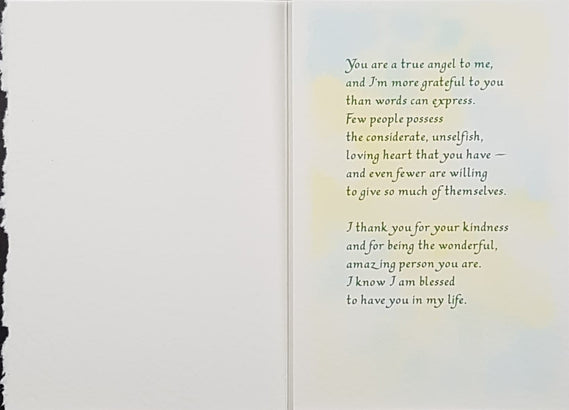 You are a true angel to me,
and I'm more grateful to you
than words can express.
Few people possess
the considerate, unselfish,
loving heart that you have —
and even fewer are willing
to give so much of themselves.
I thank you for your kindness
and for being the wonderful,
amazing person you are.
I know I am blessed
to have you in my life.